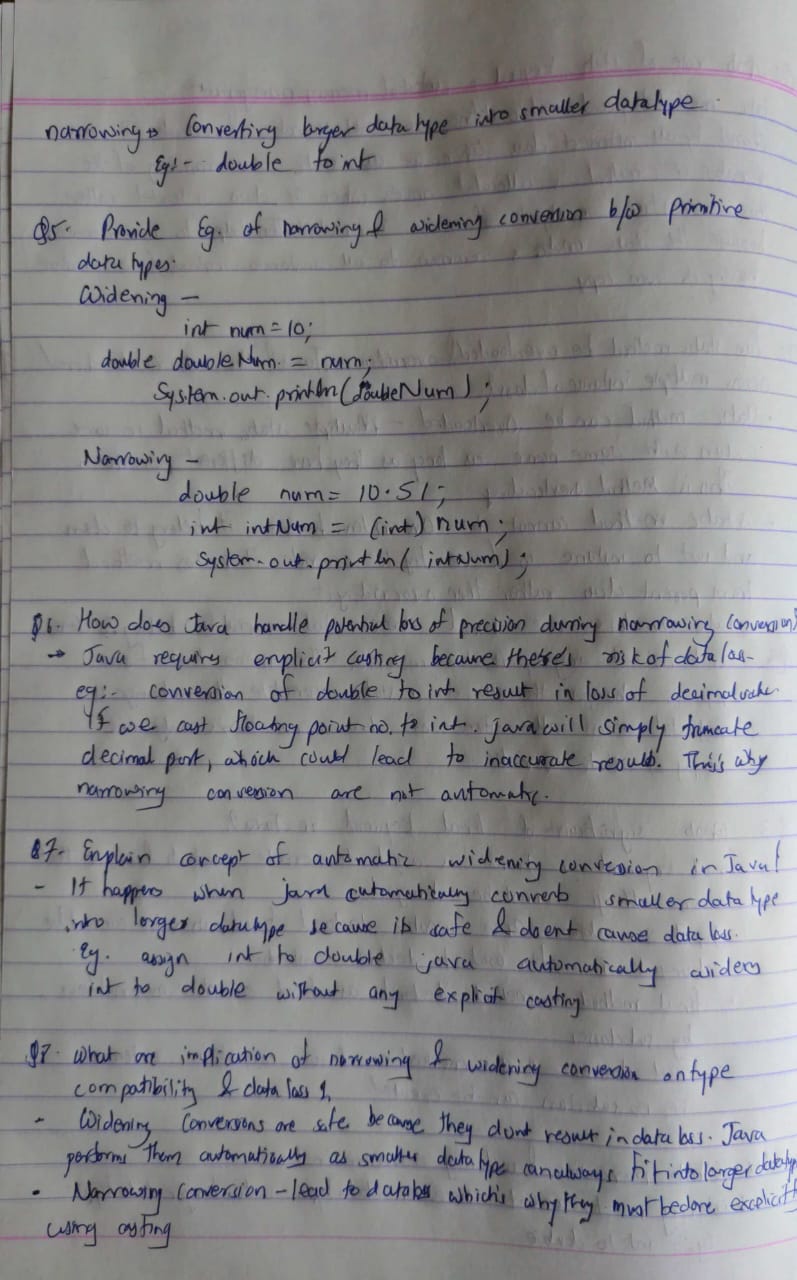 narrowing → Converting larger data type into smaller datatype.
Eg:- double to int
Q5. Provide Eg. of narrowing & widening conversion b/w primitive
data types.
Widening -
int num = 10;
double doubleNum = num;
System.out.println(doubleNum);
Narrowing -
double num = 10.51;
int intNum = (int) num;
System.out.println( intNum);
Q6. How does Java handle potential loss of precision during narrowing conversion
→ Java requires explicit casting because there's risk of data loss-
eg:- conversion of double to int result in loss of decimal value.
If we cast floating point no. to int. java will simply truncate
decimal part, which could lead to inaccurate results. This why
narrowing conversion are not automatic.
Q7. Explain concept of automatic widening conversion in Java!
- It happens when java automatically converts smaller data type
into larger datatype because its safe & doent cause data loss.
Eg. assign int to double java automatically widens
int to double without any explicit casting
What are implication of narrowing & widening conversion on type
compatibility & data loss
- Widening Conversions are safe because they dont result in data loss. Java
performs them automatically as smaller data type can always fit into larger datatype
• Narrowing conversion - lead to data loss which is why they must be done explicitly
using casting